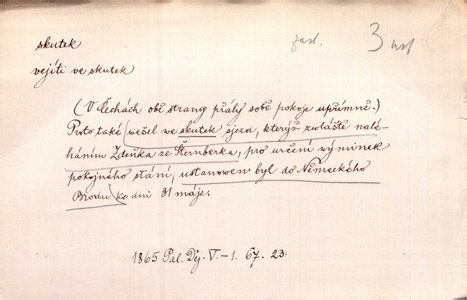 skutek
3
vejíti ve skutek
(V Čechách obě strany přály sobě pokoje upřímně.)
Proto také wešel we skutek sjezd, kterýž zwláště nalé-
háním Zdeňka ze Šternberka, pro určení wýminek
pokojného stání, ustanowen byl do Německého
Brodu ko dni 31 máje.
1865 Pal. Děj. V-1. 67. 23.